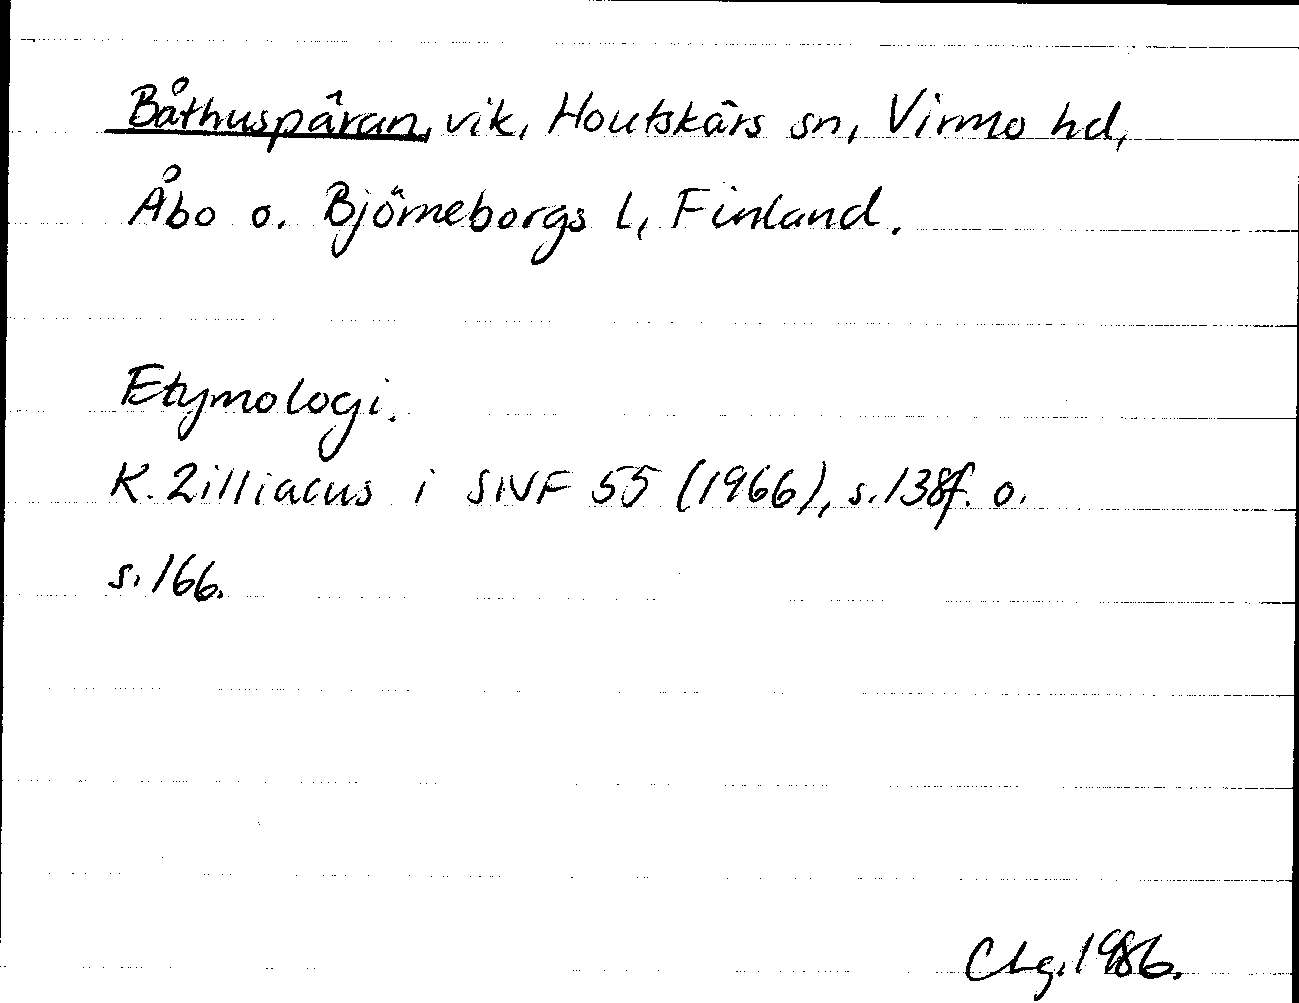 Båthuspäran, vik, Houtskärs sn, Virmo hd,
Åbo o. Björneborgs l, Finland.
Etymologi.
K. Zilliacus i SNF 55 (1966), s. 138f. o.
s. 166.
CLg. 1986.